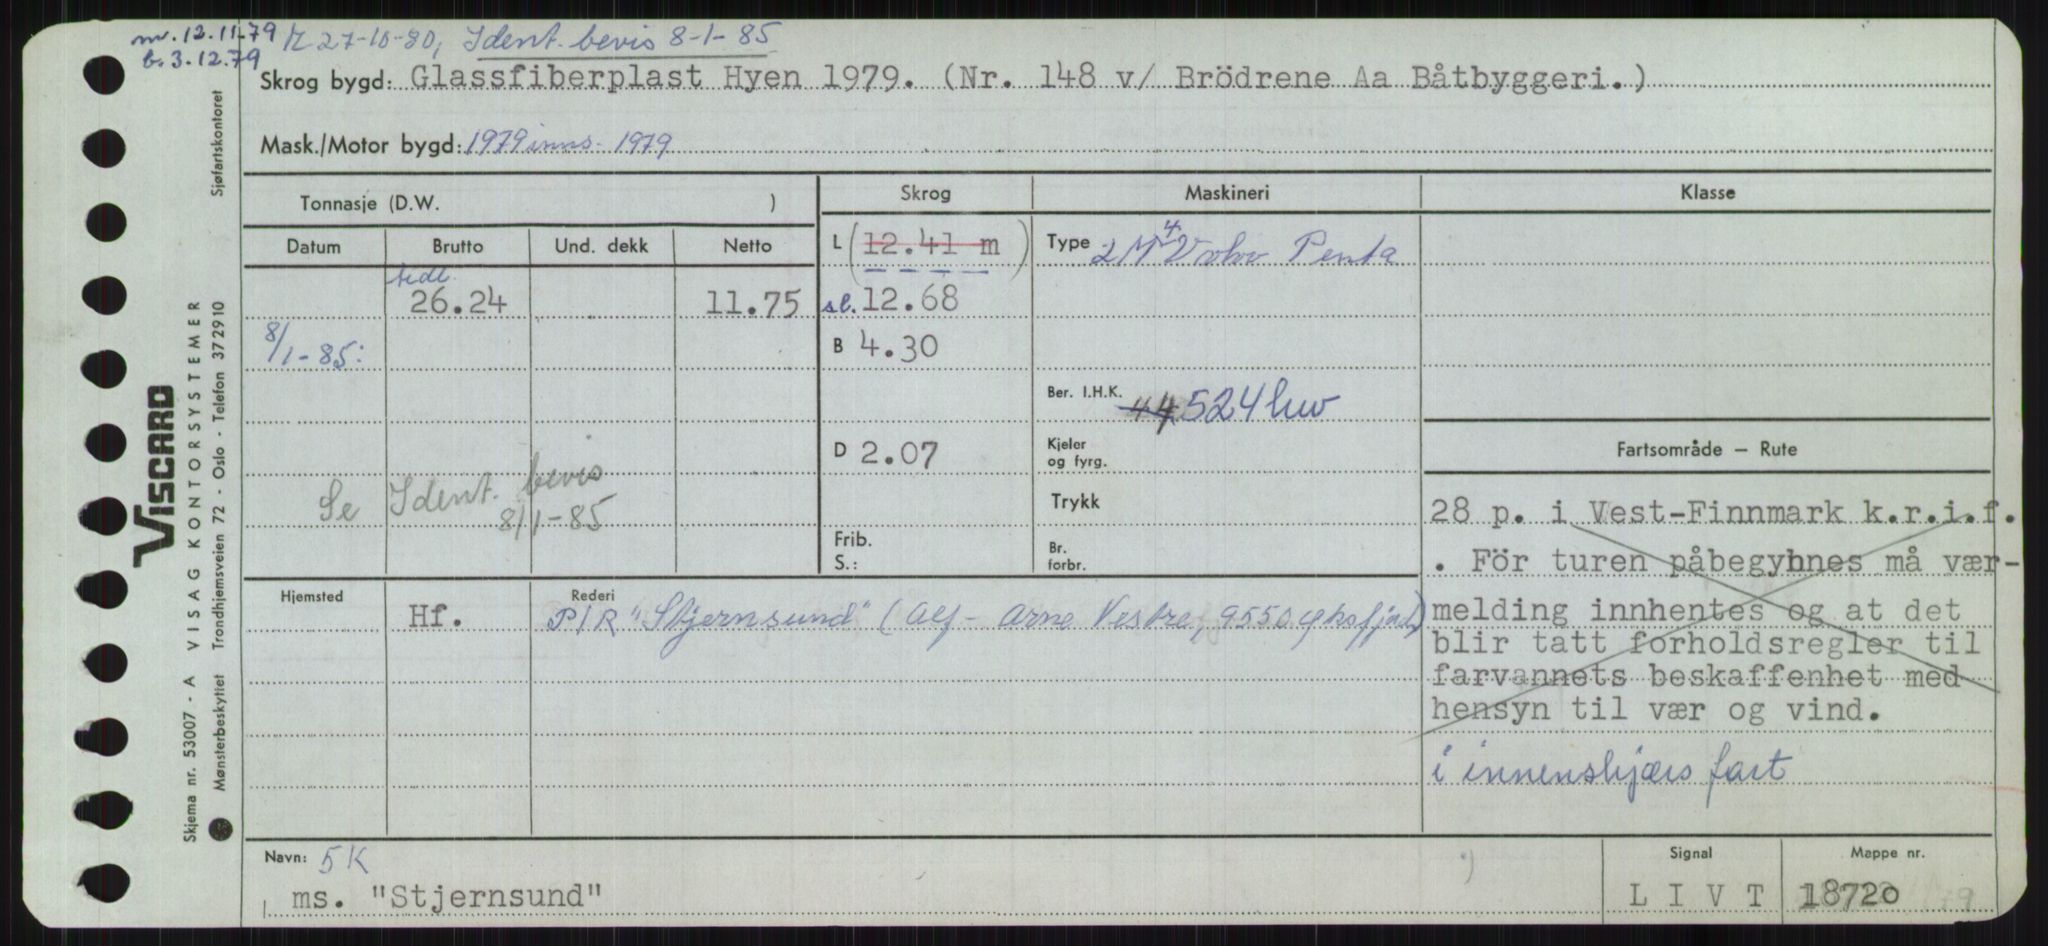 m. 12.11.79 M 27-10-80, Ident. bevis 8-1-85
b. 3.12.79
Skrog bygd: Glassfiberplast Hyen 1979. (Nr. 148 v/ Brödrene Aa Båtbyggeri.)
Mask./Motor bygd: 1979 inns. 1979
Tonnasje (D.W. )
Skrog
Maskineri
Klasse
Datum Brutto Und. dekk Netto
L (12.41 m)
Type 2 M 4 Volvo Penta
tidl.
26.24 11.75
sl. 12.68
8/1-85:
B 4.30
Ber. I.H.K. 44 524 hw
D 2.07
Kjeler
og fyrg.
Fartsområde — Rute
Se Ident. bevis
8/1-85
Trykk
Frib.
S.:
Br.
forbr.
28 p. i Vest-Finnmark k.r.i.f.
. För turen påbegynnes må vær-
melding innhentes og at det
blir tatt forholdsregler til
farvannets beskaffenhet med
hensyn til vær og vind.
i innenskjærs fart
Hjemsted Rederi
Hf. P/R "Stjernsund" (Alf-Arne Vestre, 9550 Øksfjord)
Navn: 5K
ms. "Stjernsund"
Signal
L I V T
Mappe nr.
18720
VISCARD
Skjema nr. 53007 - A VISAG KONTORSYSTEMER
Mønsterbeskyttet Trondhjemsveien 72 - Oslo - Telefon 372910
Sjøfartskontoret